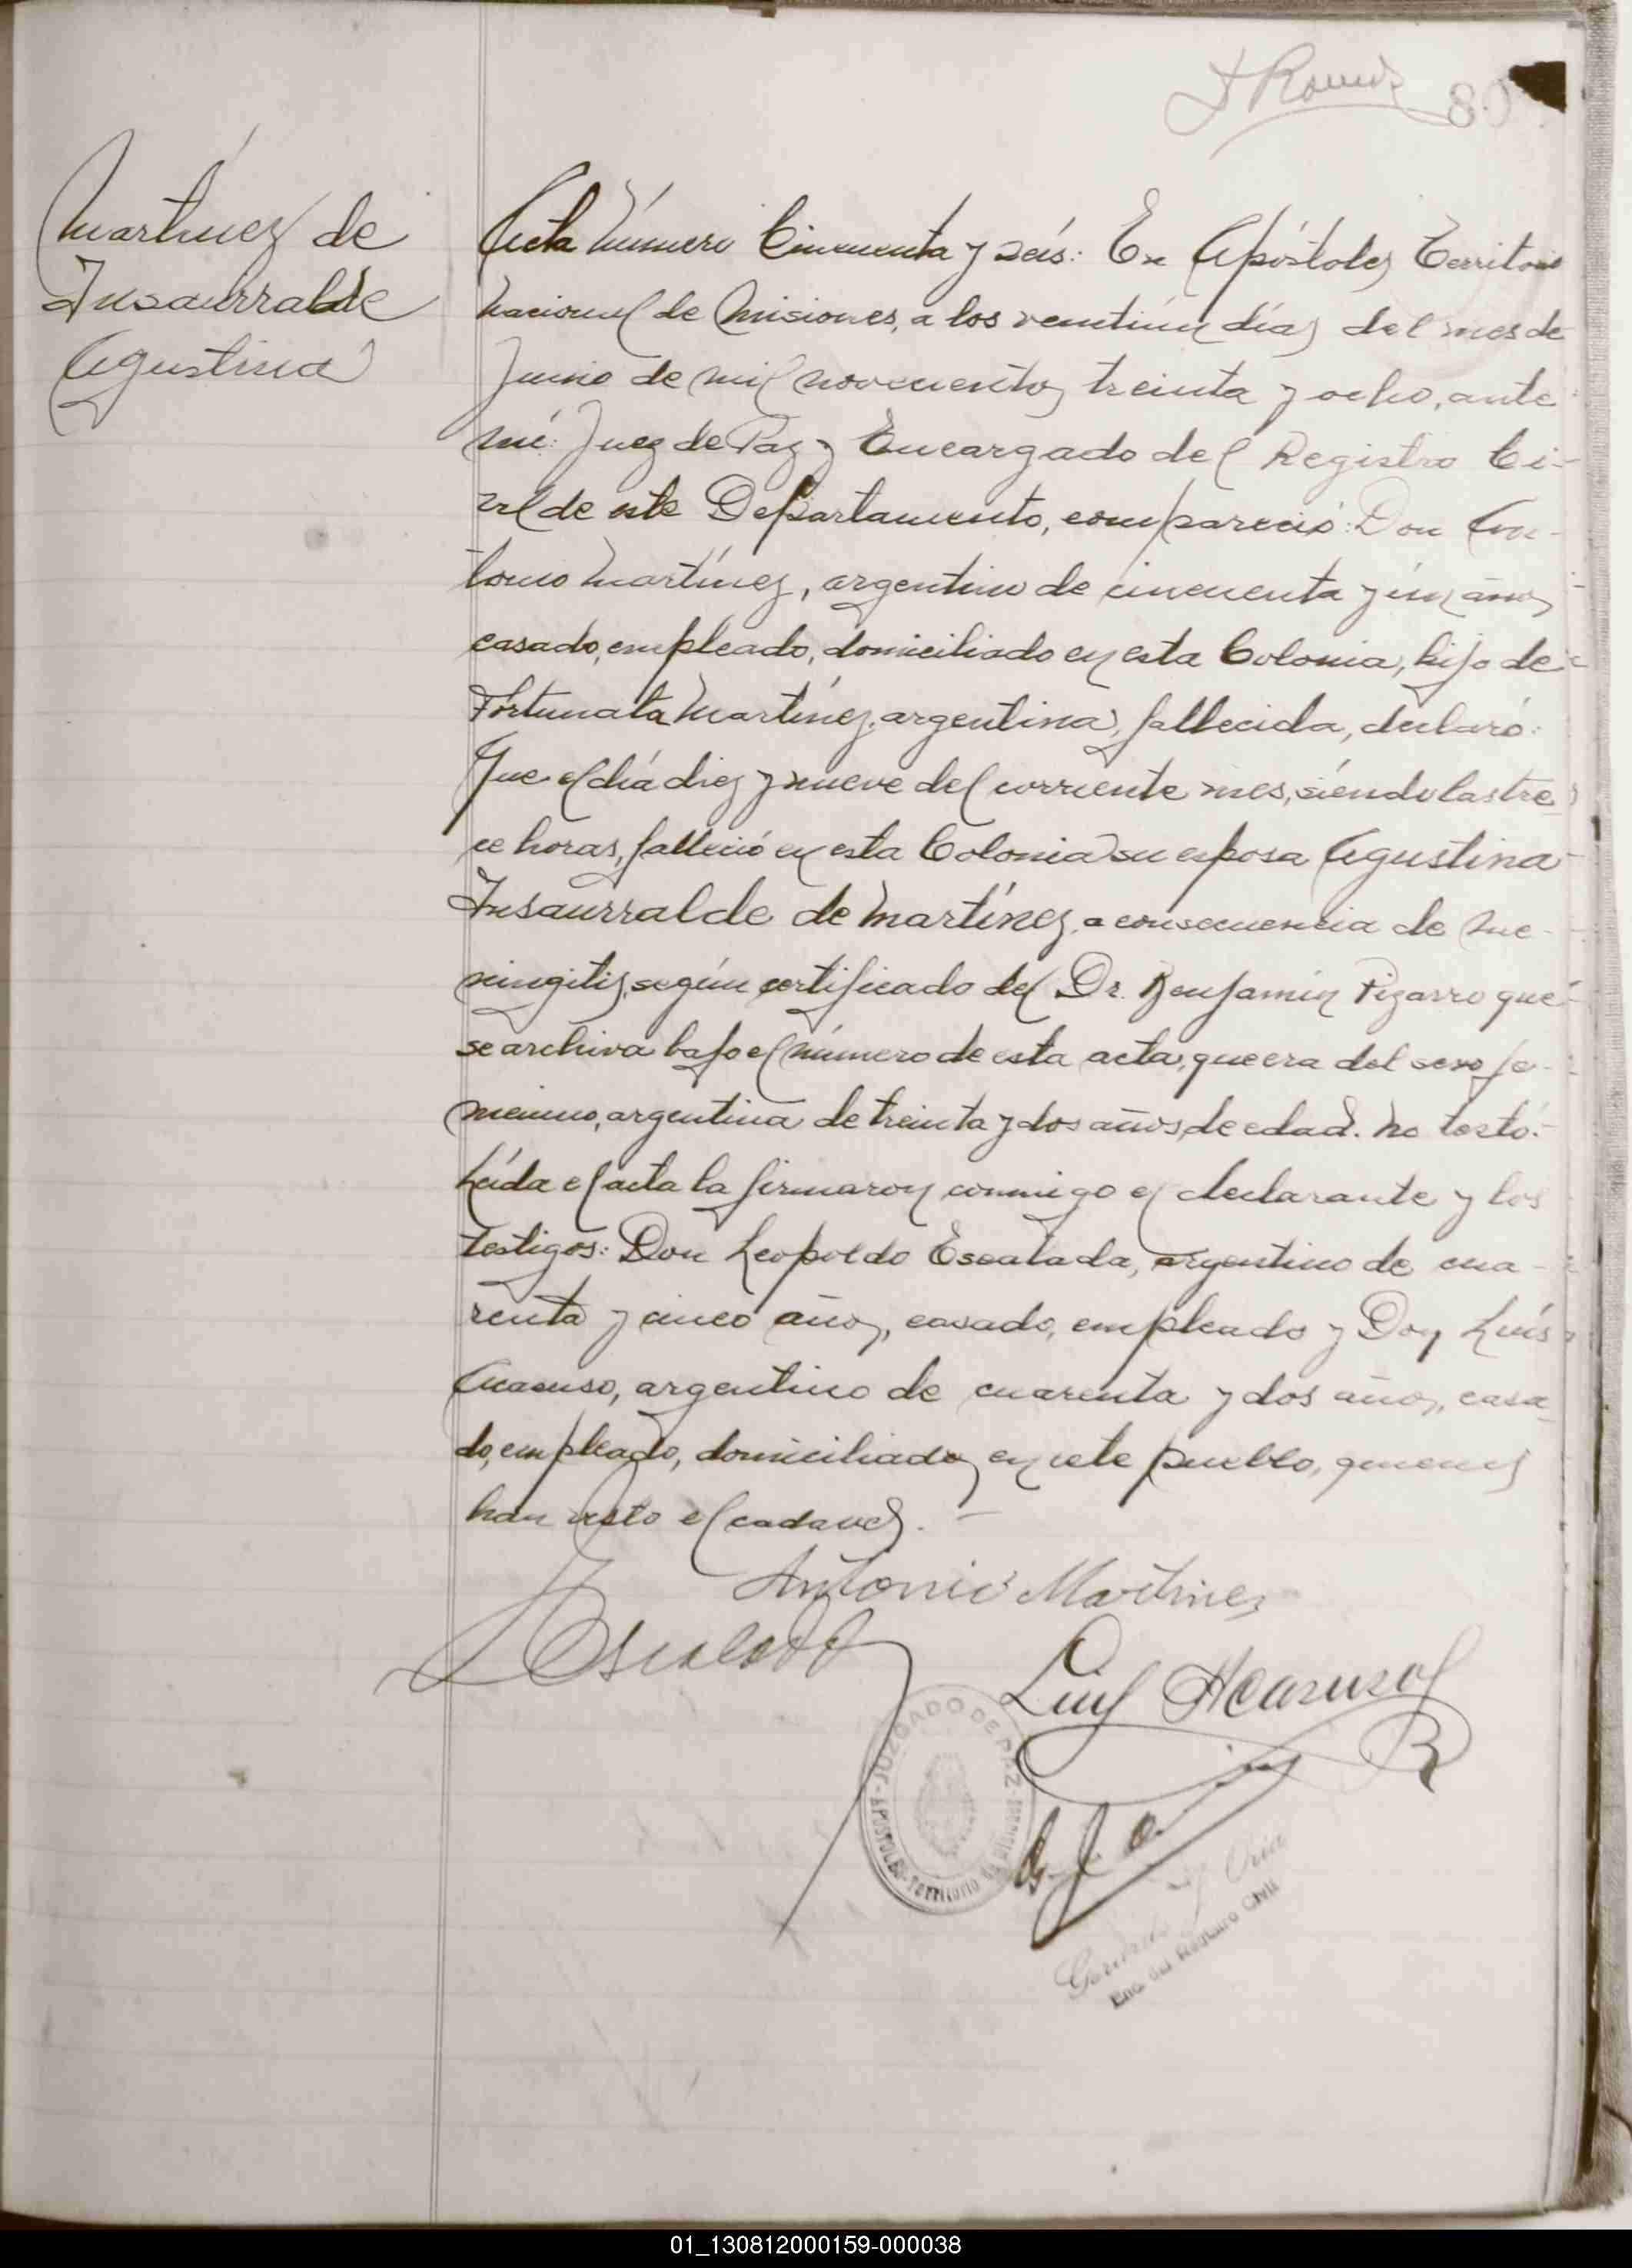 80
Martínez de
Insaurralde
Agustina
Acta Número Cincuenta y seis: En Apóstoles Territorio
Nacional de Misiones, a los veintiún días del mes de
Junio de mil novecientos treinta y ocho, ante
mí: Juez de Paz y Encargado del Registro Ci-
vil de este Departamento, compareció: Don An-
tonio Martínez, argentino de cincuenta y un años,
casado, empleado, domiciliado en esta Colonia, hijo de
Fortunata Martínez, argentina, fallecida, declaró:
Que el día diez y nueve del corriente mes, siendo las tre-
ce horas, falleció en esta Colonia su esposa Agustina
Insaurralde de Martínez, a consecuencia de me-
ningitis, según certificado del Dr. Benjamín Pizarro que
se archiva bajo el número de esta acta, que era del sexo fe-
menino, argentina de treinta y dos años de edad. No testó.-
Leída el acta la firmaron conmigo el declarante y los
testigos: Don Leopoldo Escalada, argentino de cua-
renta y cinco años, casado, empleado y Don Luís
Acasuso, argentino de cuarenta y dos años, casa-
do, empleado, domiciliados en este pueblo, quienes
han visto el cadaver. -
Antonio Martinez
LEscalada
Luis Acasuso
JUZGADO DE PAZ - APOSTOLES - Territorio de Misiones
Enc. del Registro Civil
01_130812000159-000038